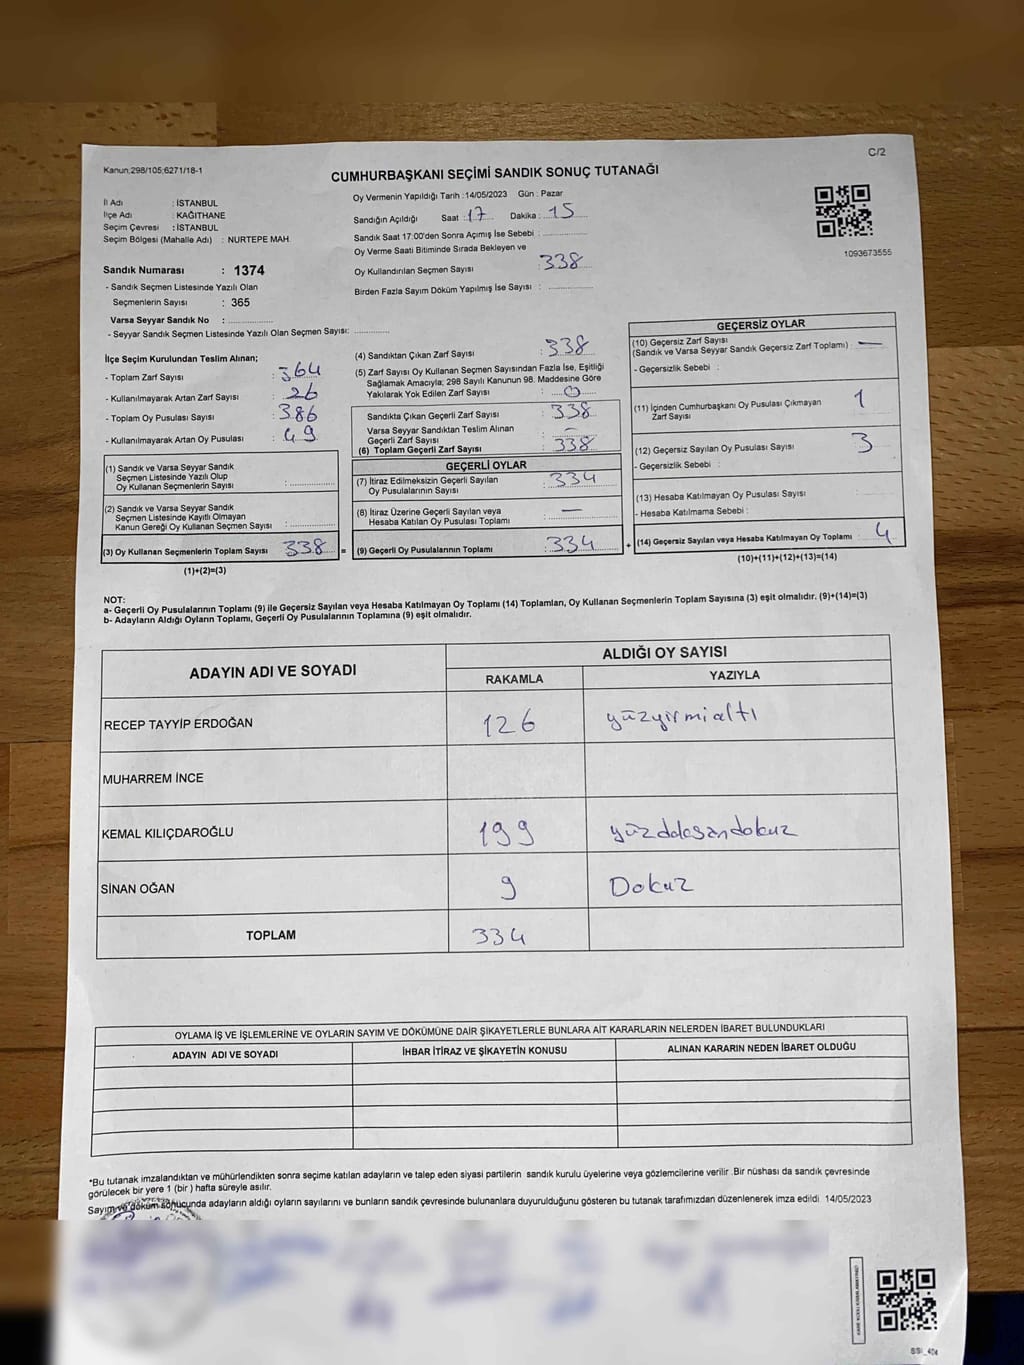 C/2
Kanun:298/105;6271/18-1
CUMHURBAŞKANI SEÇİMİ SANDIK SONUÇ TUTANAĞI
İl Adı : İSTANBUL
İlçe Adı : KAĞITHANE
Seçim Çevresi : İSTANBUL
Seçim Bölgesi (Mahalle Adı) : NURTEPE MAH.
Sandık Numarası : 1374
- Sandık Seçmen Listesinde Yazılı Olan
Seçmenlerin Sayısı : 365
Varsa Seyyar Sandık No :
- Seyyar Sandık Seçmen Listesinde Yazılı Olan Seçmen Sayısı:
Oy Vermenin Yapıldığı Tarih :14/05/2023 Gün : Pazar
Sandığın Açıldığı Saat : 17 Dakika : 15
Sandık Saat 17.00'den Sonra Açımış İse Sebebi :
Oy Verme Saati Bitiminde Sırada Bekleyen ve
Oy Kullandırılan Seçmen Sayısı : 338
Birden Fazla Sayım Döküm Yapılmış İse Sayısı :
1093673555
İlçe Seçim Kurulundan Teslim Alınan;
- Toplam Zarf Sayısı : 364
- Kullanılmayarak Artan Zarf Sayısı : 26
- Toplam Oy Pusulası Sayısı : 386
- Kullanılmayarak Artan Oy Pusulası : 49
(1) Sandık ve Varsa Seyyar Sandık
Seçmen Listesinde Yazılı Olup
Oy Kullanan Seçmenlerin Sayısı :
(2) Sandık ve Varsa Seyyar Sandık
Seçmen Listesinde Kayıtlı Olmayan
Kanun Gereği Oy Kullanan Seçmen Sayısı :
(3) Oy Kullanan Seçmenlerin Toplam Sayısı 338 =
(1)+(2)=(3)
(4) Sandıktan Çıkan Zarf Sayısı : 338
(5) Zarf Sayısı Oy Kullanan Seçmen Sayısından Fazla İse, Eşitliği
Sağlamak Amacıyla; 298 Sayılı Kanunun 98. Maddesine Göre
Yakılarak Yok Edilen Zarf Sayısı : 0
Sandıkta Çıkan Geçerli Zarf Sayısı : 338
Varsa Seyyar Sandıktan Teslim Alınan
Geçerli Zarf Sayısı : –
(6) Toplam Geçerli Zarf Sayısı : 338
GEÇERLİ OYLAR
(7) İtiraz Edilmeksizin Geçerli Sayılan
Oy Pusulalarının Sayısı : 334
(8) İtiraz Üzerine Geçerli Sayılan veya
Hesaba Katılan Oy Pusulası Toplamı : —
(9) Geçerli Oy Pusulalarının Toplamı : 334 +
GEÇERSİZ OYLAR
(10) Geçersiz Zarf Sayısı
(Sandık ve Varsa Seyyar Sandık Geçersiz Zarf Toplamı) : —
- Geçersizlik Sebebi :
(11) İçinden Cumhurbaşkanı Oy Pusulası Çıkmayan
Zarf Sayısı 1
(12) Geçersiz Sayılan Oy Pusulası Sayısı 3
- Geçersizlik Sebebi :
(13) Hesaba Katılmayan Oy Pusulası Sayısı :
- Hesaba Katılmama Sebebi :
(14) Geçersiz Sayılan veya Hesaba Katılmayan Oy Toplamı : 4
(10)+(11)+(12)+(13)=(14)
NOT:
a- Geçerli Oy Pusulalarının Toplamı (9) ile Geçersiz Sayılan veya Hesaba Katılmayan Oy Toplamı (14) Toplamları, Oy Kullanan Seçmenlerin Toplam Sayısına (3) eşit olmalıdır. (9)+(14)=(3)
b- Adayların Aldığı Oyların Toplamı, Geçerli Oy Pusulalarının Toplamına (9) eşit olmalıdır.
ADAYIN ADI VE SOYADI
ALDIĞI OY SAYISI
RAKAMLA YAZIYLA
RECEP TAYYİP ERDOĞAN 126 yüzyirmialtı
MUHARREM İNCE
KEMAL KILIÇDAROĞLU 199 yüzdoksandokuz
SİNAN OĞAN 9 Dokuz
TOPLAM 334
OYLAMA İŞ VE İŞLEMLERİNE VE OYLARIN SAYIM VE DÖKÜMÜNE DAİR ŞİKAYETLERLE BUNLARA AİT KARARLARIN NELERDEN İBARET BULUNDUKLARI
ADAYIN ADI VE SOYADI İHBAR İTİRAZ VE ŞİKAYETİN KONUSU ALINAN KARARIN NEDEN İBARET OLDUĞU
*Bu tutanak imzalandıktan ve mühürlendikten sonra seçime katılan adayların ve talep eden siyasi partilerin sandık kurulu üyelerine veya gözlemcilerine verilir .Bir nüshası da sandık çevresinde
görülecek bir yere 1 (bir ) hafta süreyle asılır.
Sayım ve döküm sonucunda adayların aldığı oyların sayılarını ve bunların sandık çevresinde bulunanlara duyurulduğunu gösteren bu tutanak tarafımızdan düzenlenerek imza edildi 14/05/2023